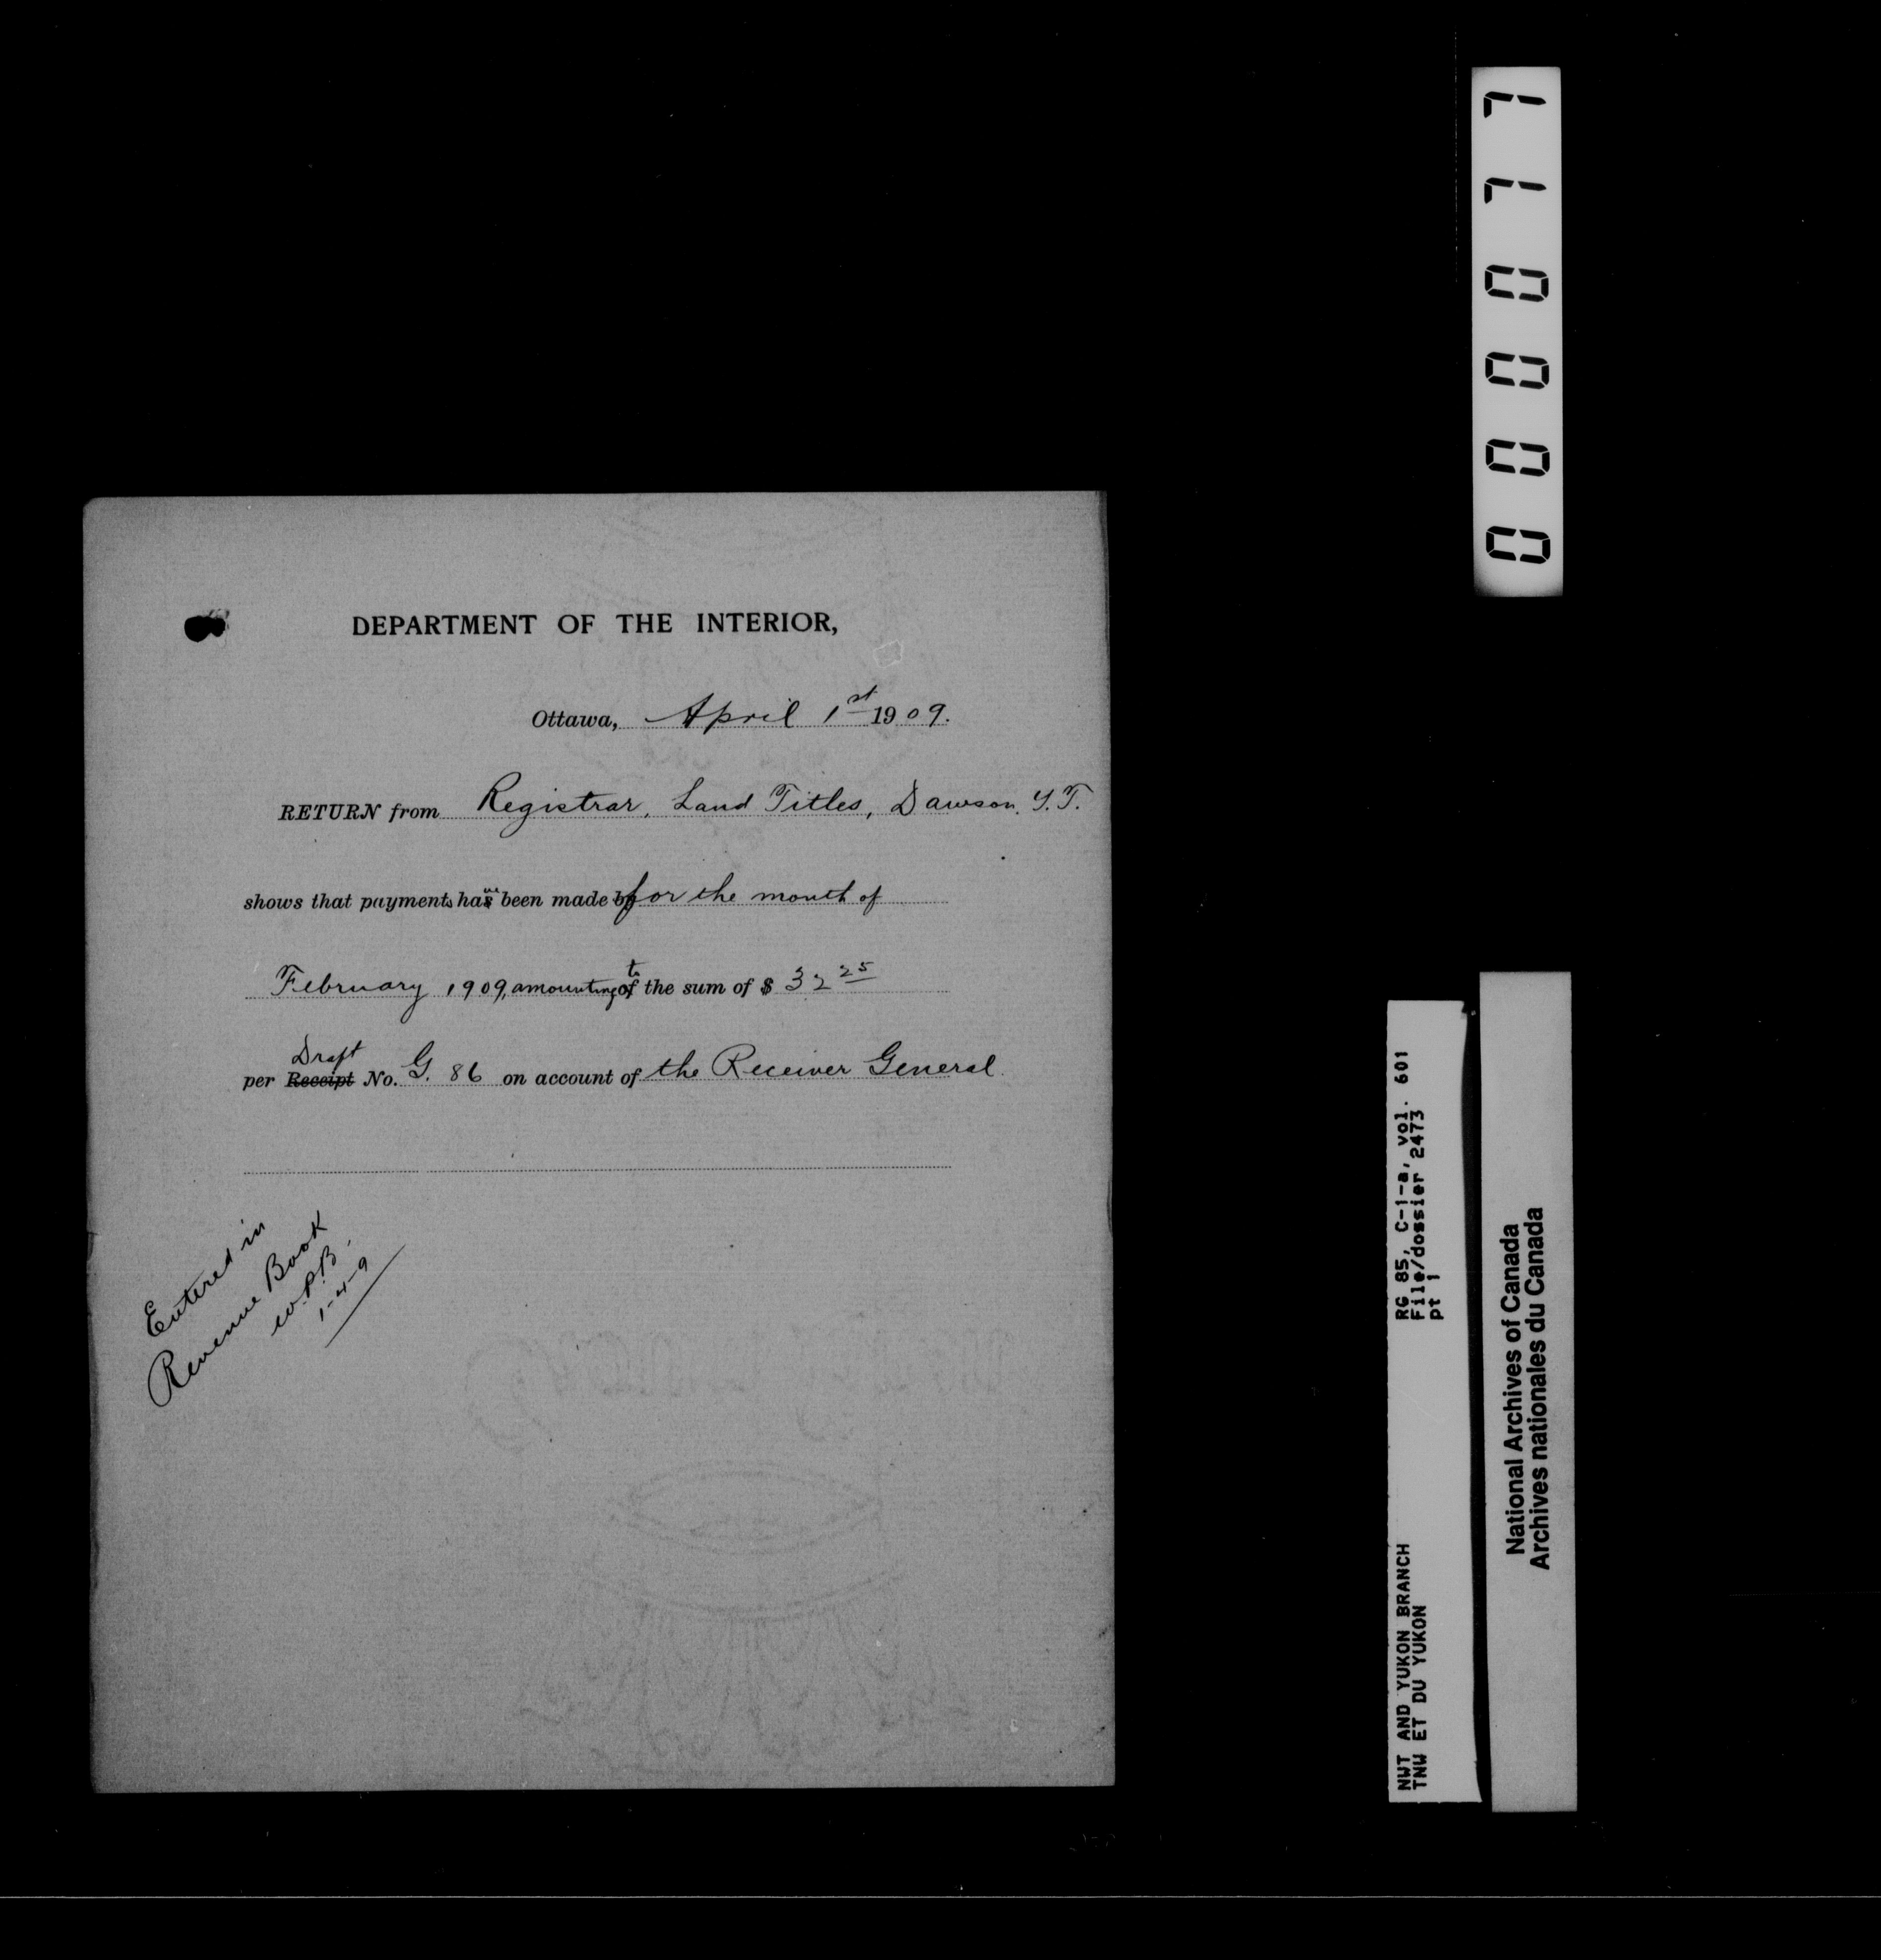 DEPARTMENT OF THE INTERIOR,
Ottawa, April 1st 1909.
RETURN from Registrar, Land Titles, Dawson. Y.T.
shows that payments have been made for the month of
February 1909, amounting to the sum of $ 32 25
per Draft Receipt No. G. 86 on account of the Receiver General.
Entered in
Revenue Book
W.P.B.
1-4-9
000077
RG 85, C-1-a, vol. 601
File/dossier 2473
pt 1
NWT AND YUKON BRANCH
TNW ET DU YUKON
National Archives of Canada
Archives nationales du Canada